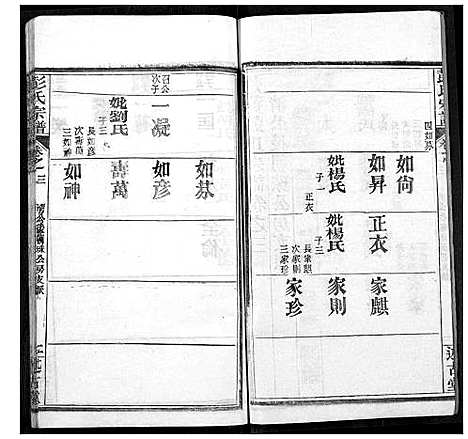 四如芬
如尚
如昇
妣楊氏
子一
正衣
正衣
妣楊氏
子三
長家麒
次家則
三家珍
家麒
家則
家珍
彭氏宗譜
卷之三
四公
次子
一凝
妣劉氏
子三
長如彦
次壽萬
三如神
如芬
如彦
壽萬
如神